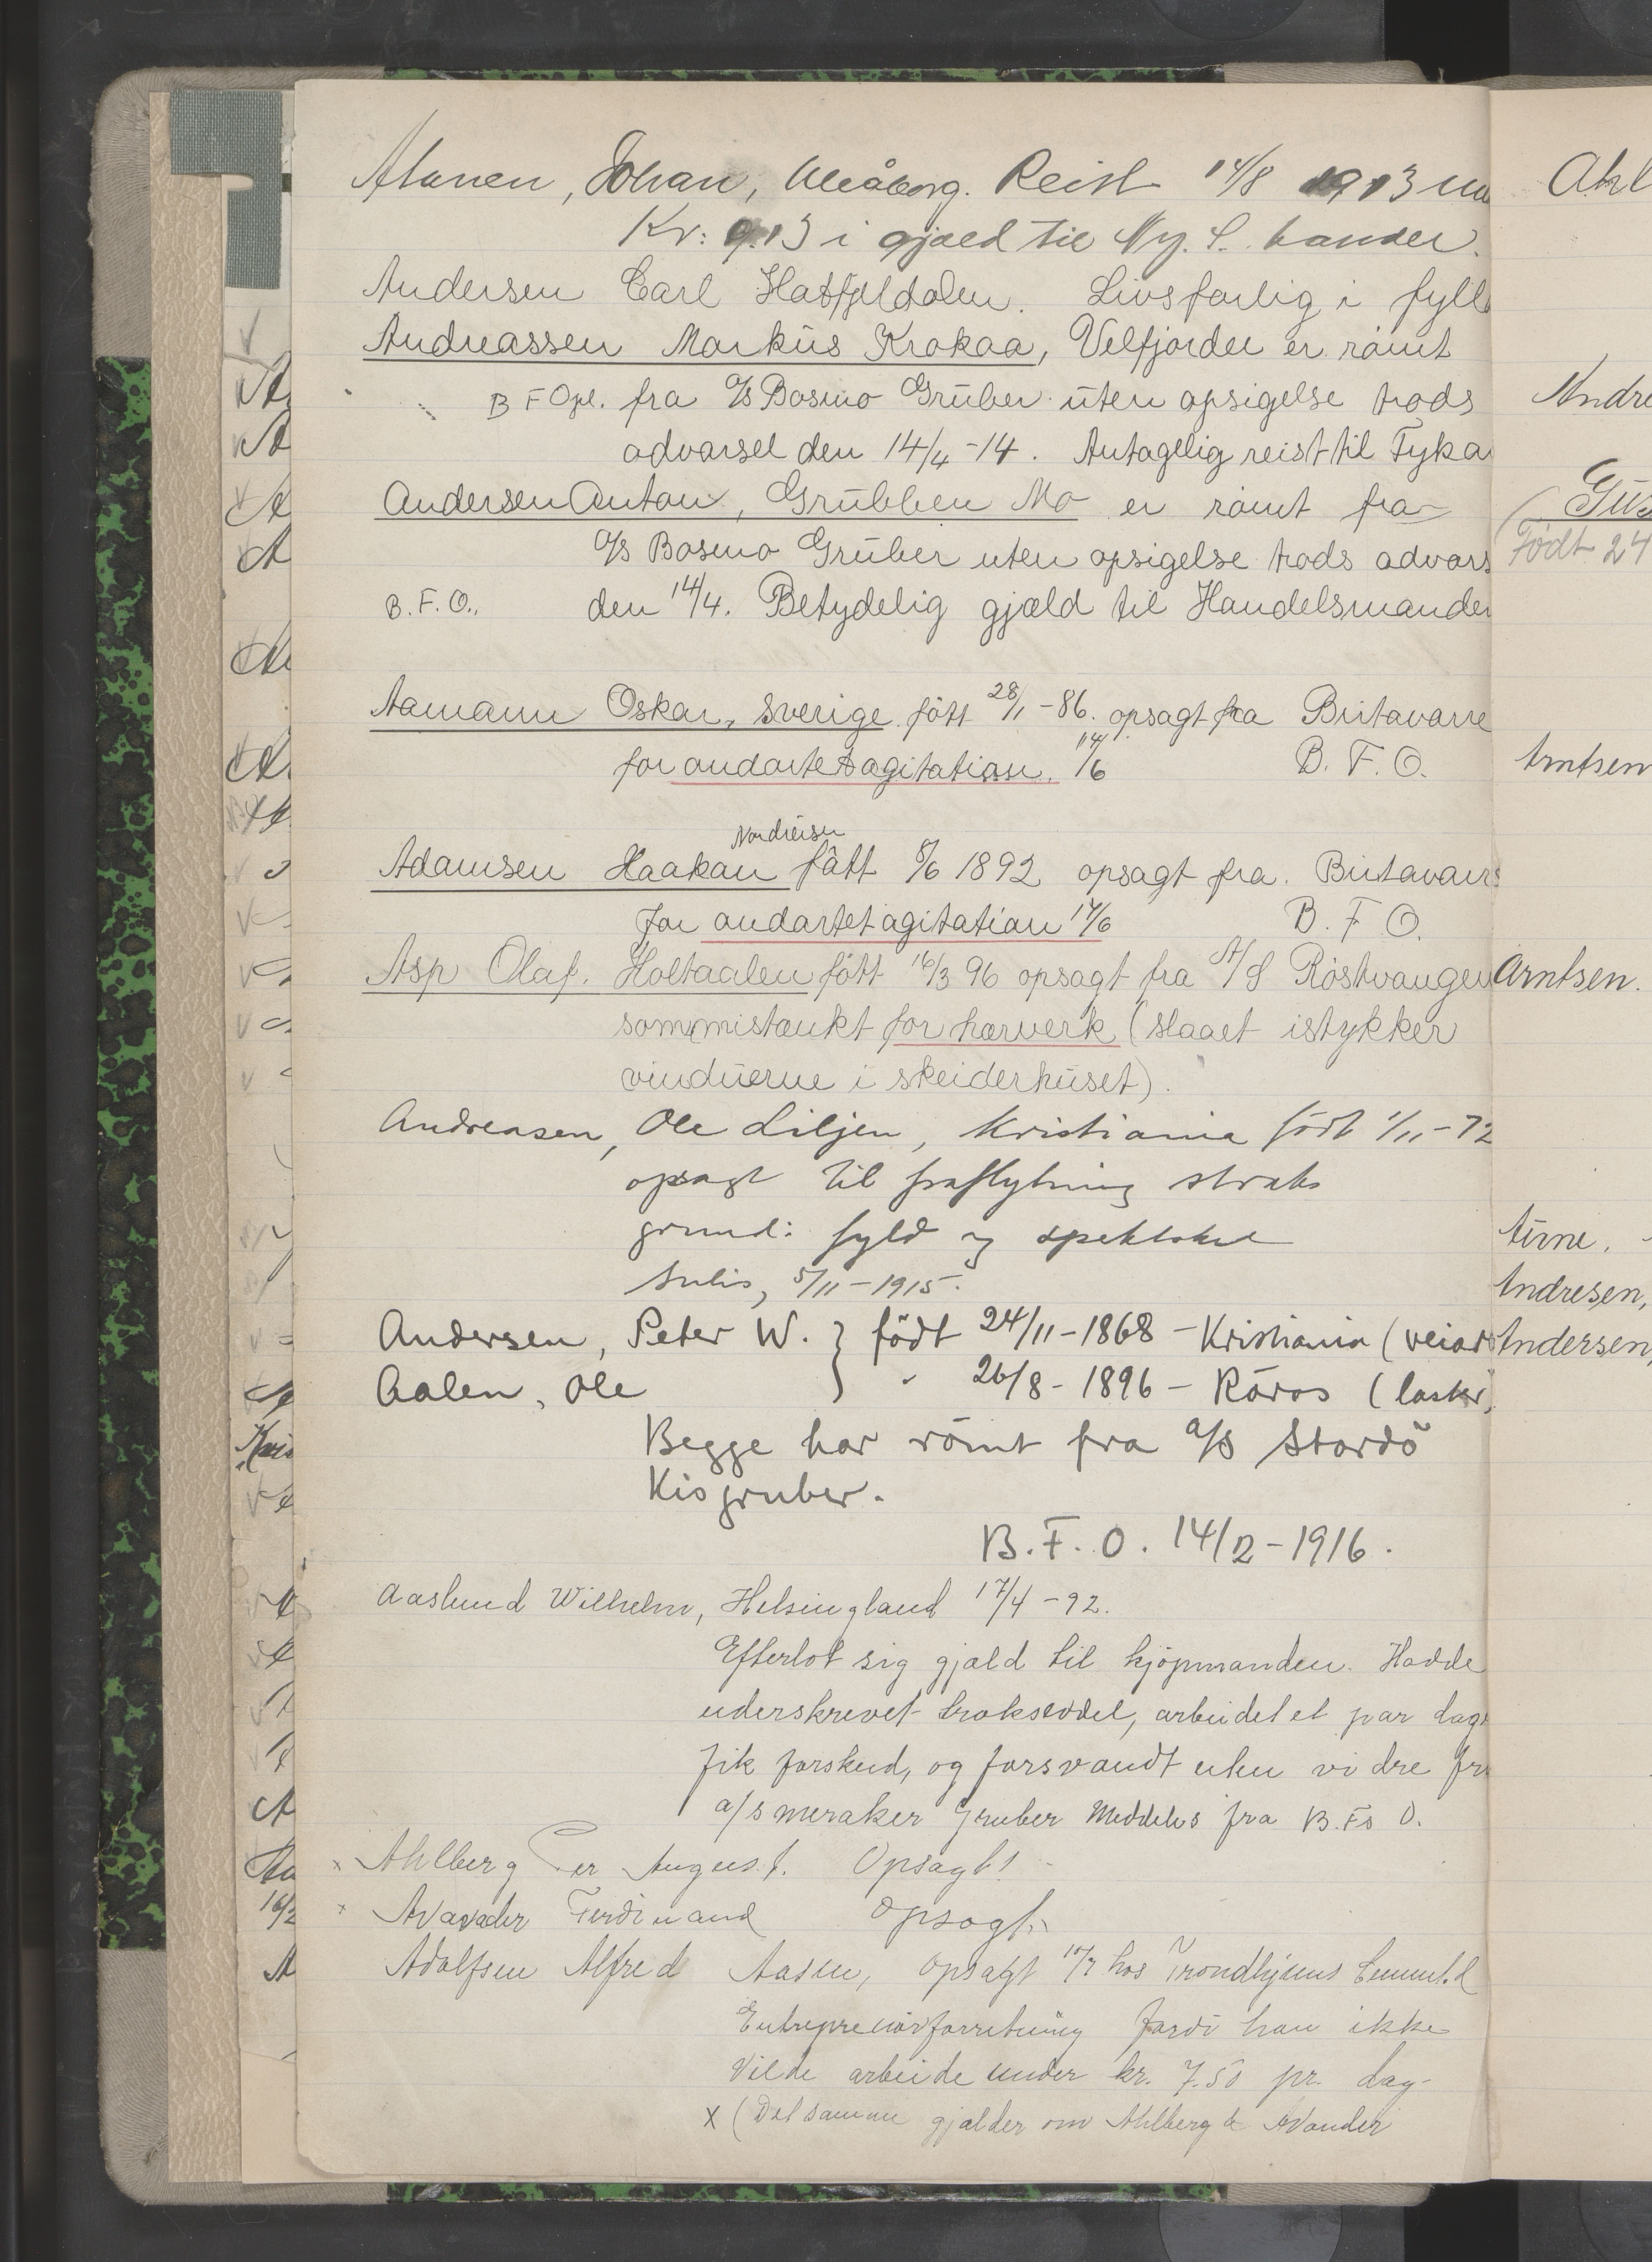 Alanen, Johan, Uleåborg. Reist 14/8 1913
Kr: 9.13 i gjæld til Ny. S.
Andersen Carl Hatfjeldalen. Livsfarlig i fyll
Andreassen Markus Krokaa, Velfjorden er rømt
B F Opl. fra A/S Bosmo Gruber uten opsigelse trods
advarsel den 14/4-14. Antagelig reist til Fyka
Andersen Anton, Grubben Mo er rømt fra
A/S Bosmo Gruber uten opsigelse trods advars
B.F.O., den 14/4. Betydelig gjæld til Handelsmanden
Aamann Oskar, Sverige født 28/1-86. opsagt fra Birtavarre
for andartet agitation. 14/6 B. F. O.
Nordreisen
Adamsen Haakan født 8/6 1892 opsagt fra. Birtavarre
for andartet agitation 14/6 B. F O.
Asp Olaf. Holtaalen født 16/3 96 opsagt fra A/S Røstvangen
som mistænkt for hærverk (slaaet istykker
vinduerne i skeiderhuset).
Andreasen, Ole Liljen, Kristiania født 1/11-72
opsagt til fraflytning straks
grund: fyld og spektakel
Sulis, 5/11-1915.
Andersen, Peter W. } født 24/11-1868 - Kristiania (veiar
Aalen, Ole } " 26/8-1896 - Røros (lasker)
Begge har rømt fra a/s Stordø
Kisgruber.
B.F.O. 14/2-1916.
Aaslund Wilhelm, Helsingland 17/4-92.
Efterlot sig gjæld til kjøpmanden. Hadde
uderskrevet trækseddel, arbeidet et par dag
fik forskud, og forsvandt uten vi dre fra
a/s meraker Gruber Meddeles fra B.Fs O.
x Ahlberg Per August. Opsagt!
x Avavader Ferdinand Opsagt.
Adolfsen Alfred Aasen, Opsagt 17/7 hos Trondhjems Cement &
Entreprenørforretning fordi han ikke
vilde arbeide under kr. 7.50 pr. dag
x (Det samme gjælder om Ahlberg & Avander
Ahl
Andre
Gus
Født 24
Arntsen
Arntsen.
Arne.
Andresen,
Andersen,